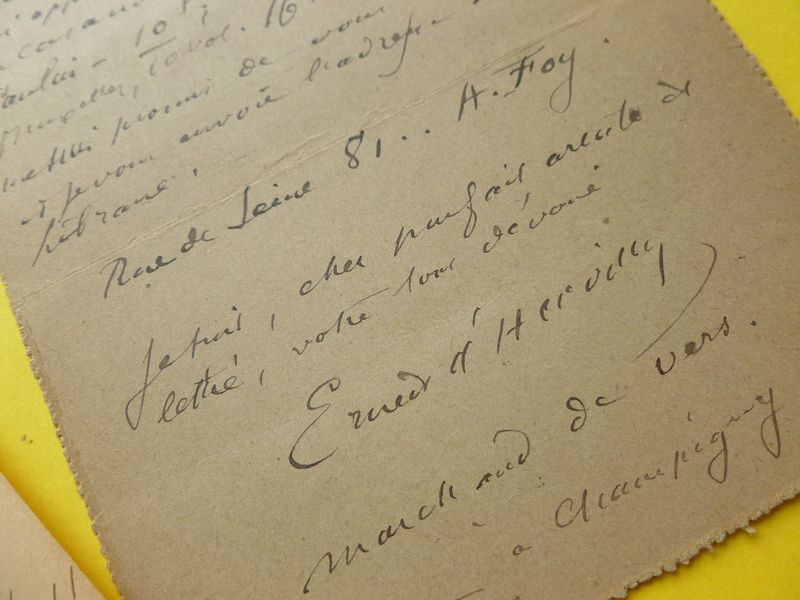 10 f.
10 vol. 16
promis de vous
et je vous envoie l'adresse
libraire.
Rue de Seine 81.. A. Foy.
Je suis, cher parfait artiste et
lettré, votre tout dévoué
Ernest d'Hervilly
marchand de vers.
a Champigny